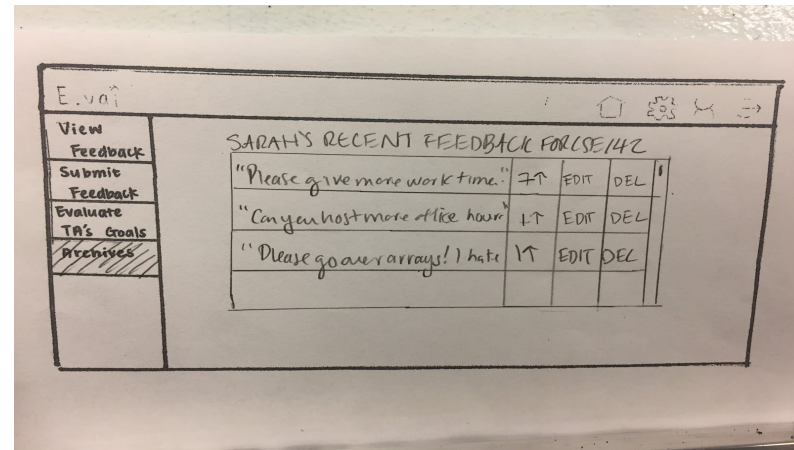 E.vai
View
Feedback
Submit
Feedback
Evaluate
TA's Goals
Archives
SARAH'S RECENT FEEDBACK FOR CSE142
"Please give more work time." 7↑ EDIT DEL
"Can you host more office hours" 1↑ EDIT DEL
"Please go over arrays! I hate 1↑ EDIT DEL